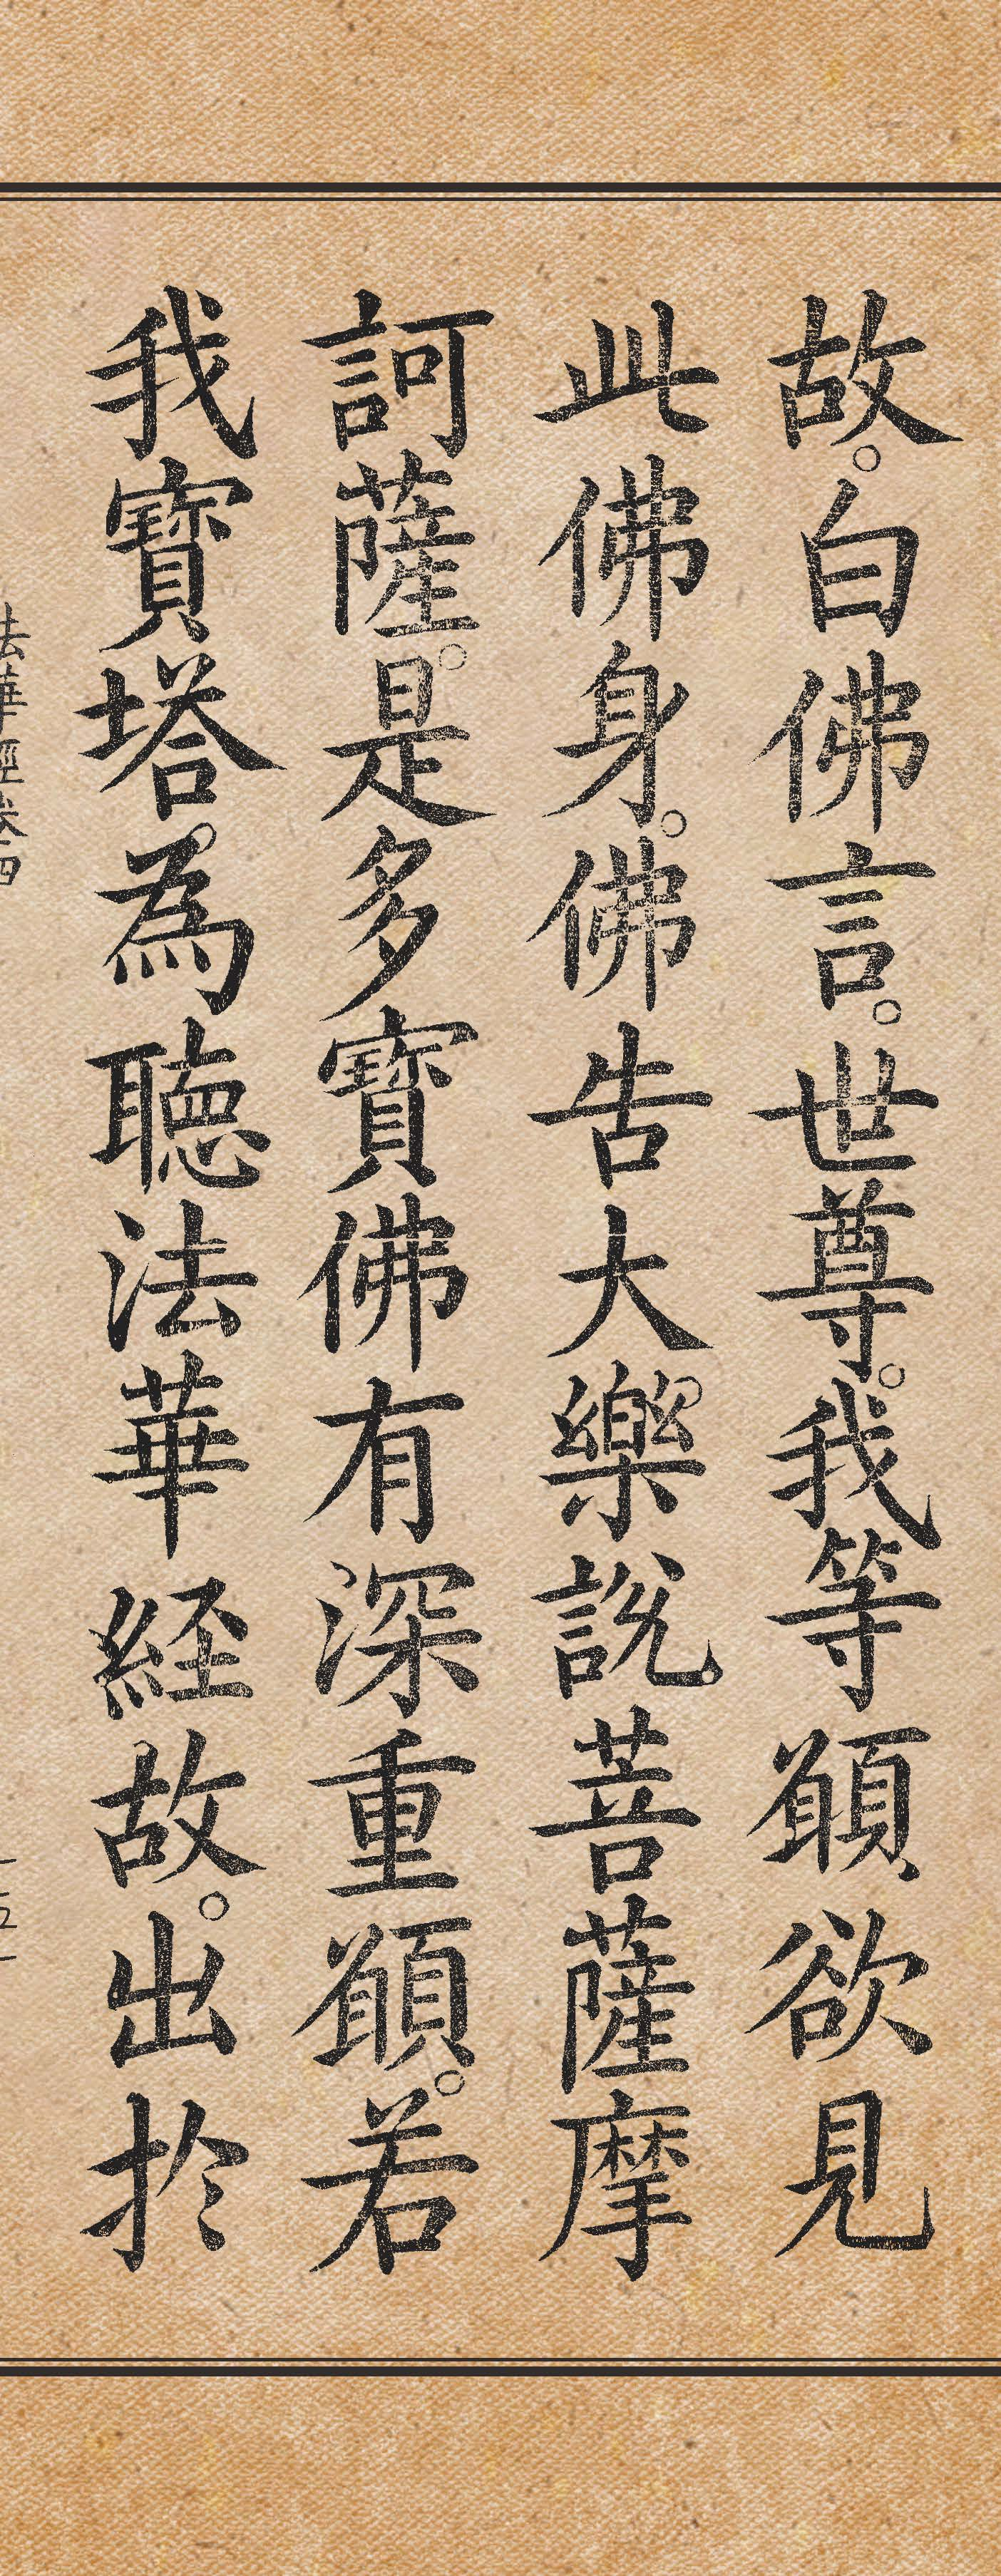 故。白佛言。世尊。我等願欲見
此佛身。佛告大樂說。菩薩摩
訶薩。是多寶佛有深重願。若
我寶塔。為聽法華經故。出於
法華經卷四
一五一